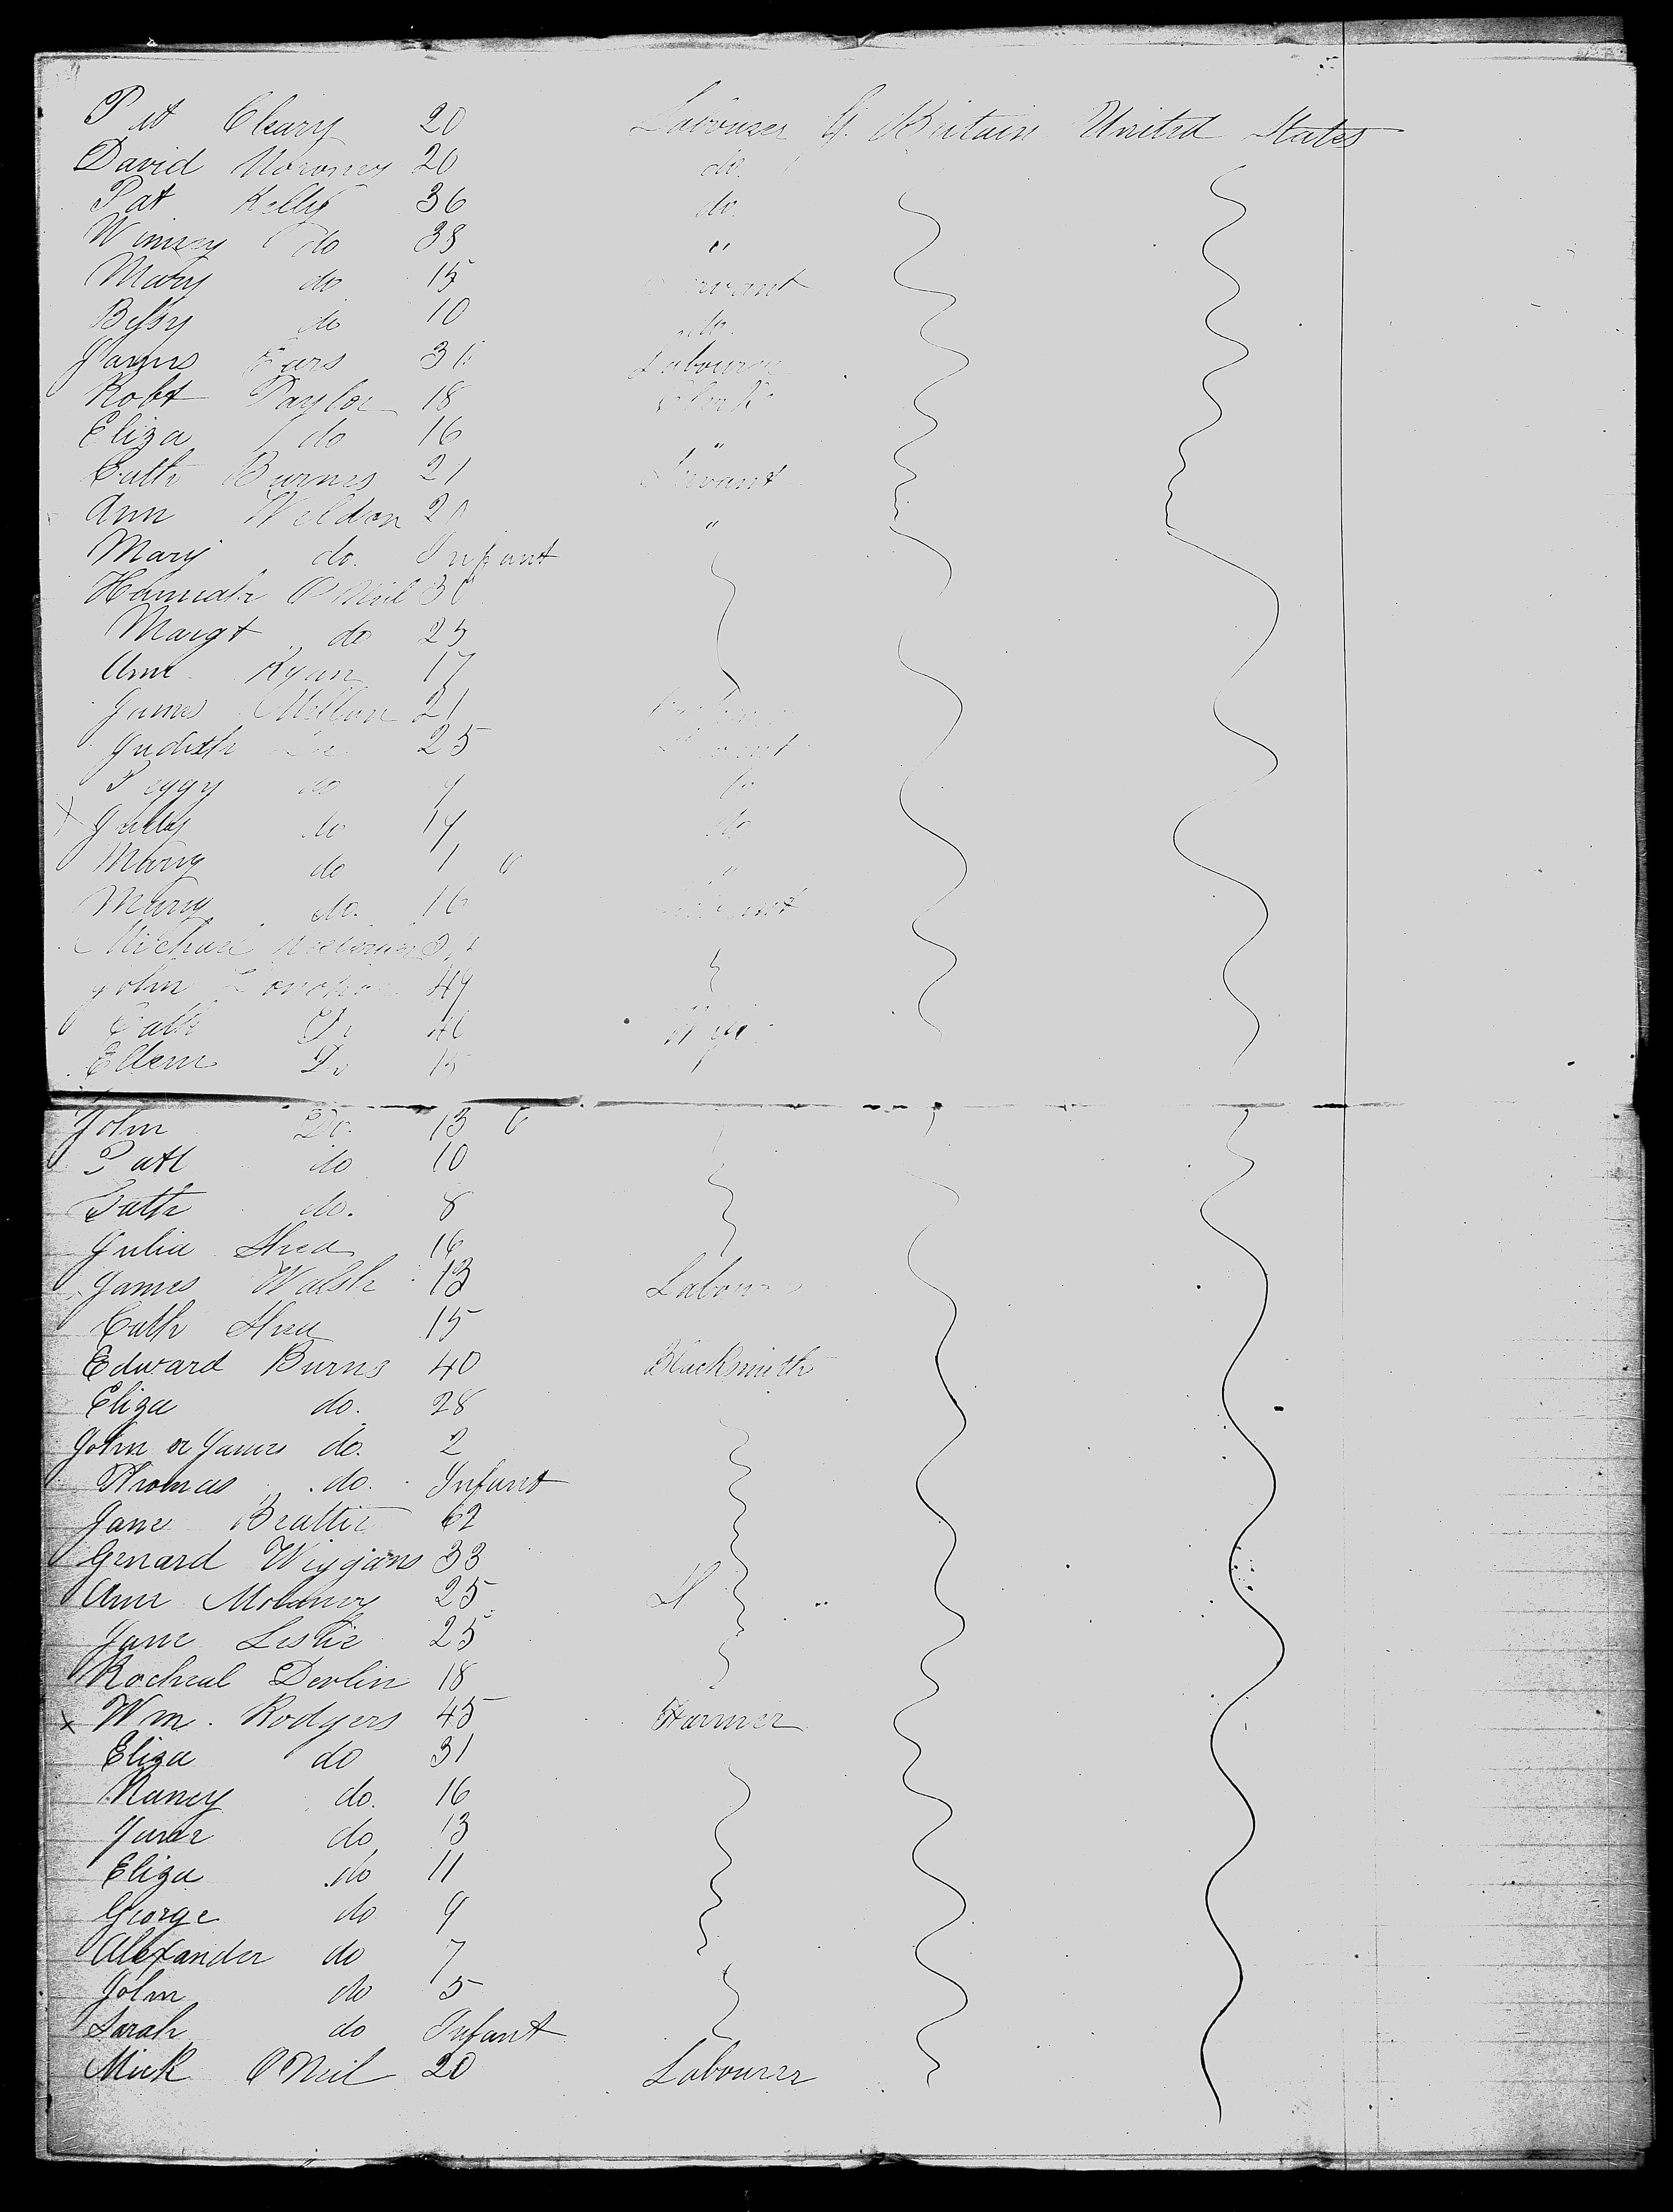 Pat Cleary 20 Labourer G. Britain United States
David 20 do.
Pat Kelly 36 do.
Winney do 38 "
Mary do 15 Servant
Bessy do 10 do.
James 31 Labourer
Robt Taylor 18 Clerk
Eliza do 16 "
Cath Burnes 21 Servant
Ann Weldon 20 "
Mary do. Infant
Hannah O Neil 30
Margt do 25
Ann Ryan 17
James 21
Judith 25 Servant
Peggy do 9 do
do 14 do
Mary do 1 "
Mary do. 16 Servant
Michael
John 49
Cath Do 46 Wife
Ellen Do 15
John Do. 13 6
Patk do 10
Cath do. 8
Julia Shea 16
James Walsh 13 Labourer
Cath Shea 15
Edward Burns 40 Blacksmith
Eliza do. 28
John or James do. 2
Thomas do. Infant
Jane Beattie 62
Gerrard Wiggans 33
Ann Moloney 25
Jane Leslie 25
Racheal Devlin 18
x Wm. Rodgers 45 Farmer
Eliza do 31
Nancy do. 16
Jane do 13
Eliza do 11
George do 9
Alexander do 7
John do 5
Sarah do Infant
Mick O Neil 20 Labourer